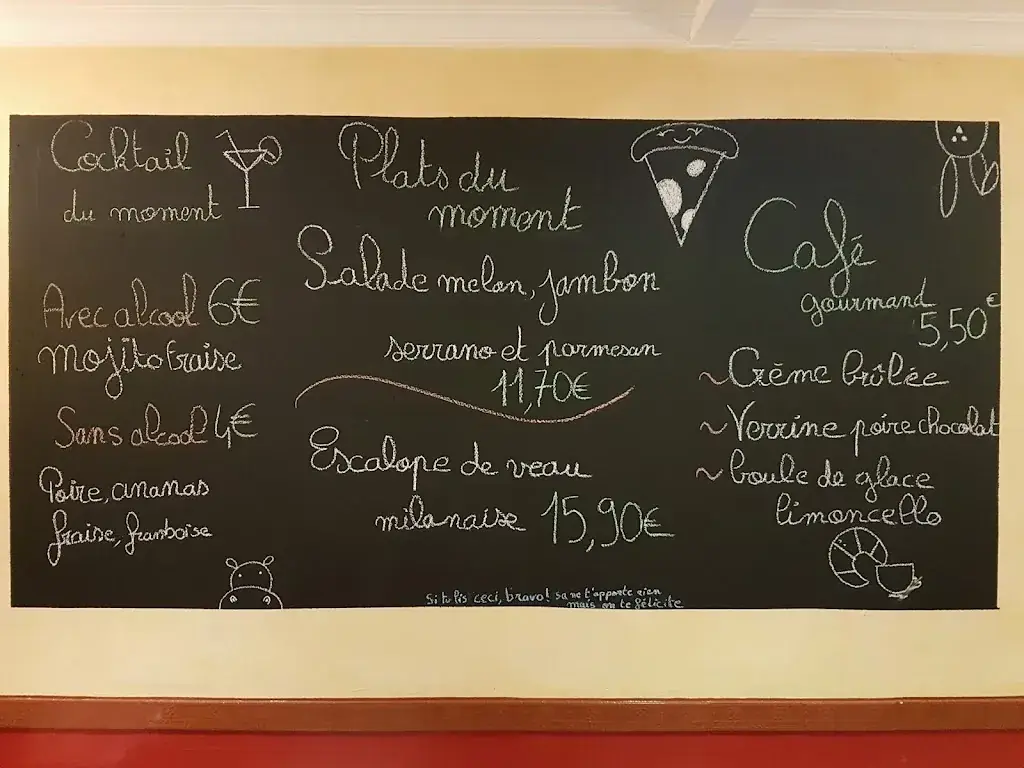 Cocktail
du moment
Avec alcool 6€
mojito fraise
Sans alcool 4€
Poire, ananas
fraise, framboise
Plats du
moment
Salade melon, jambon
serrano et parmesan
11,70€
Escalope de veau
milanaise 15,90€
Si tu lis ceci, bravo! sa ne t'apporte rien
mais on te félicite
Café
gourmand
5,50€
~ Crème brûlée
~ Verrine poire chocolat
~ boule de glace
limoncello